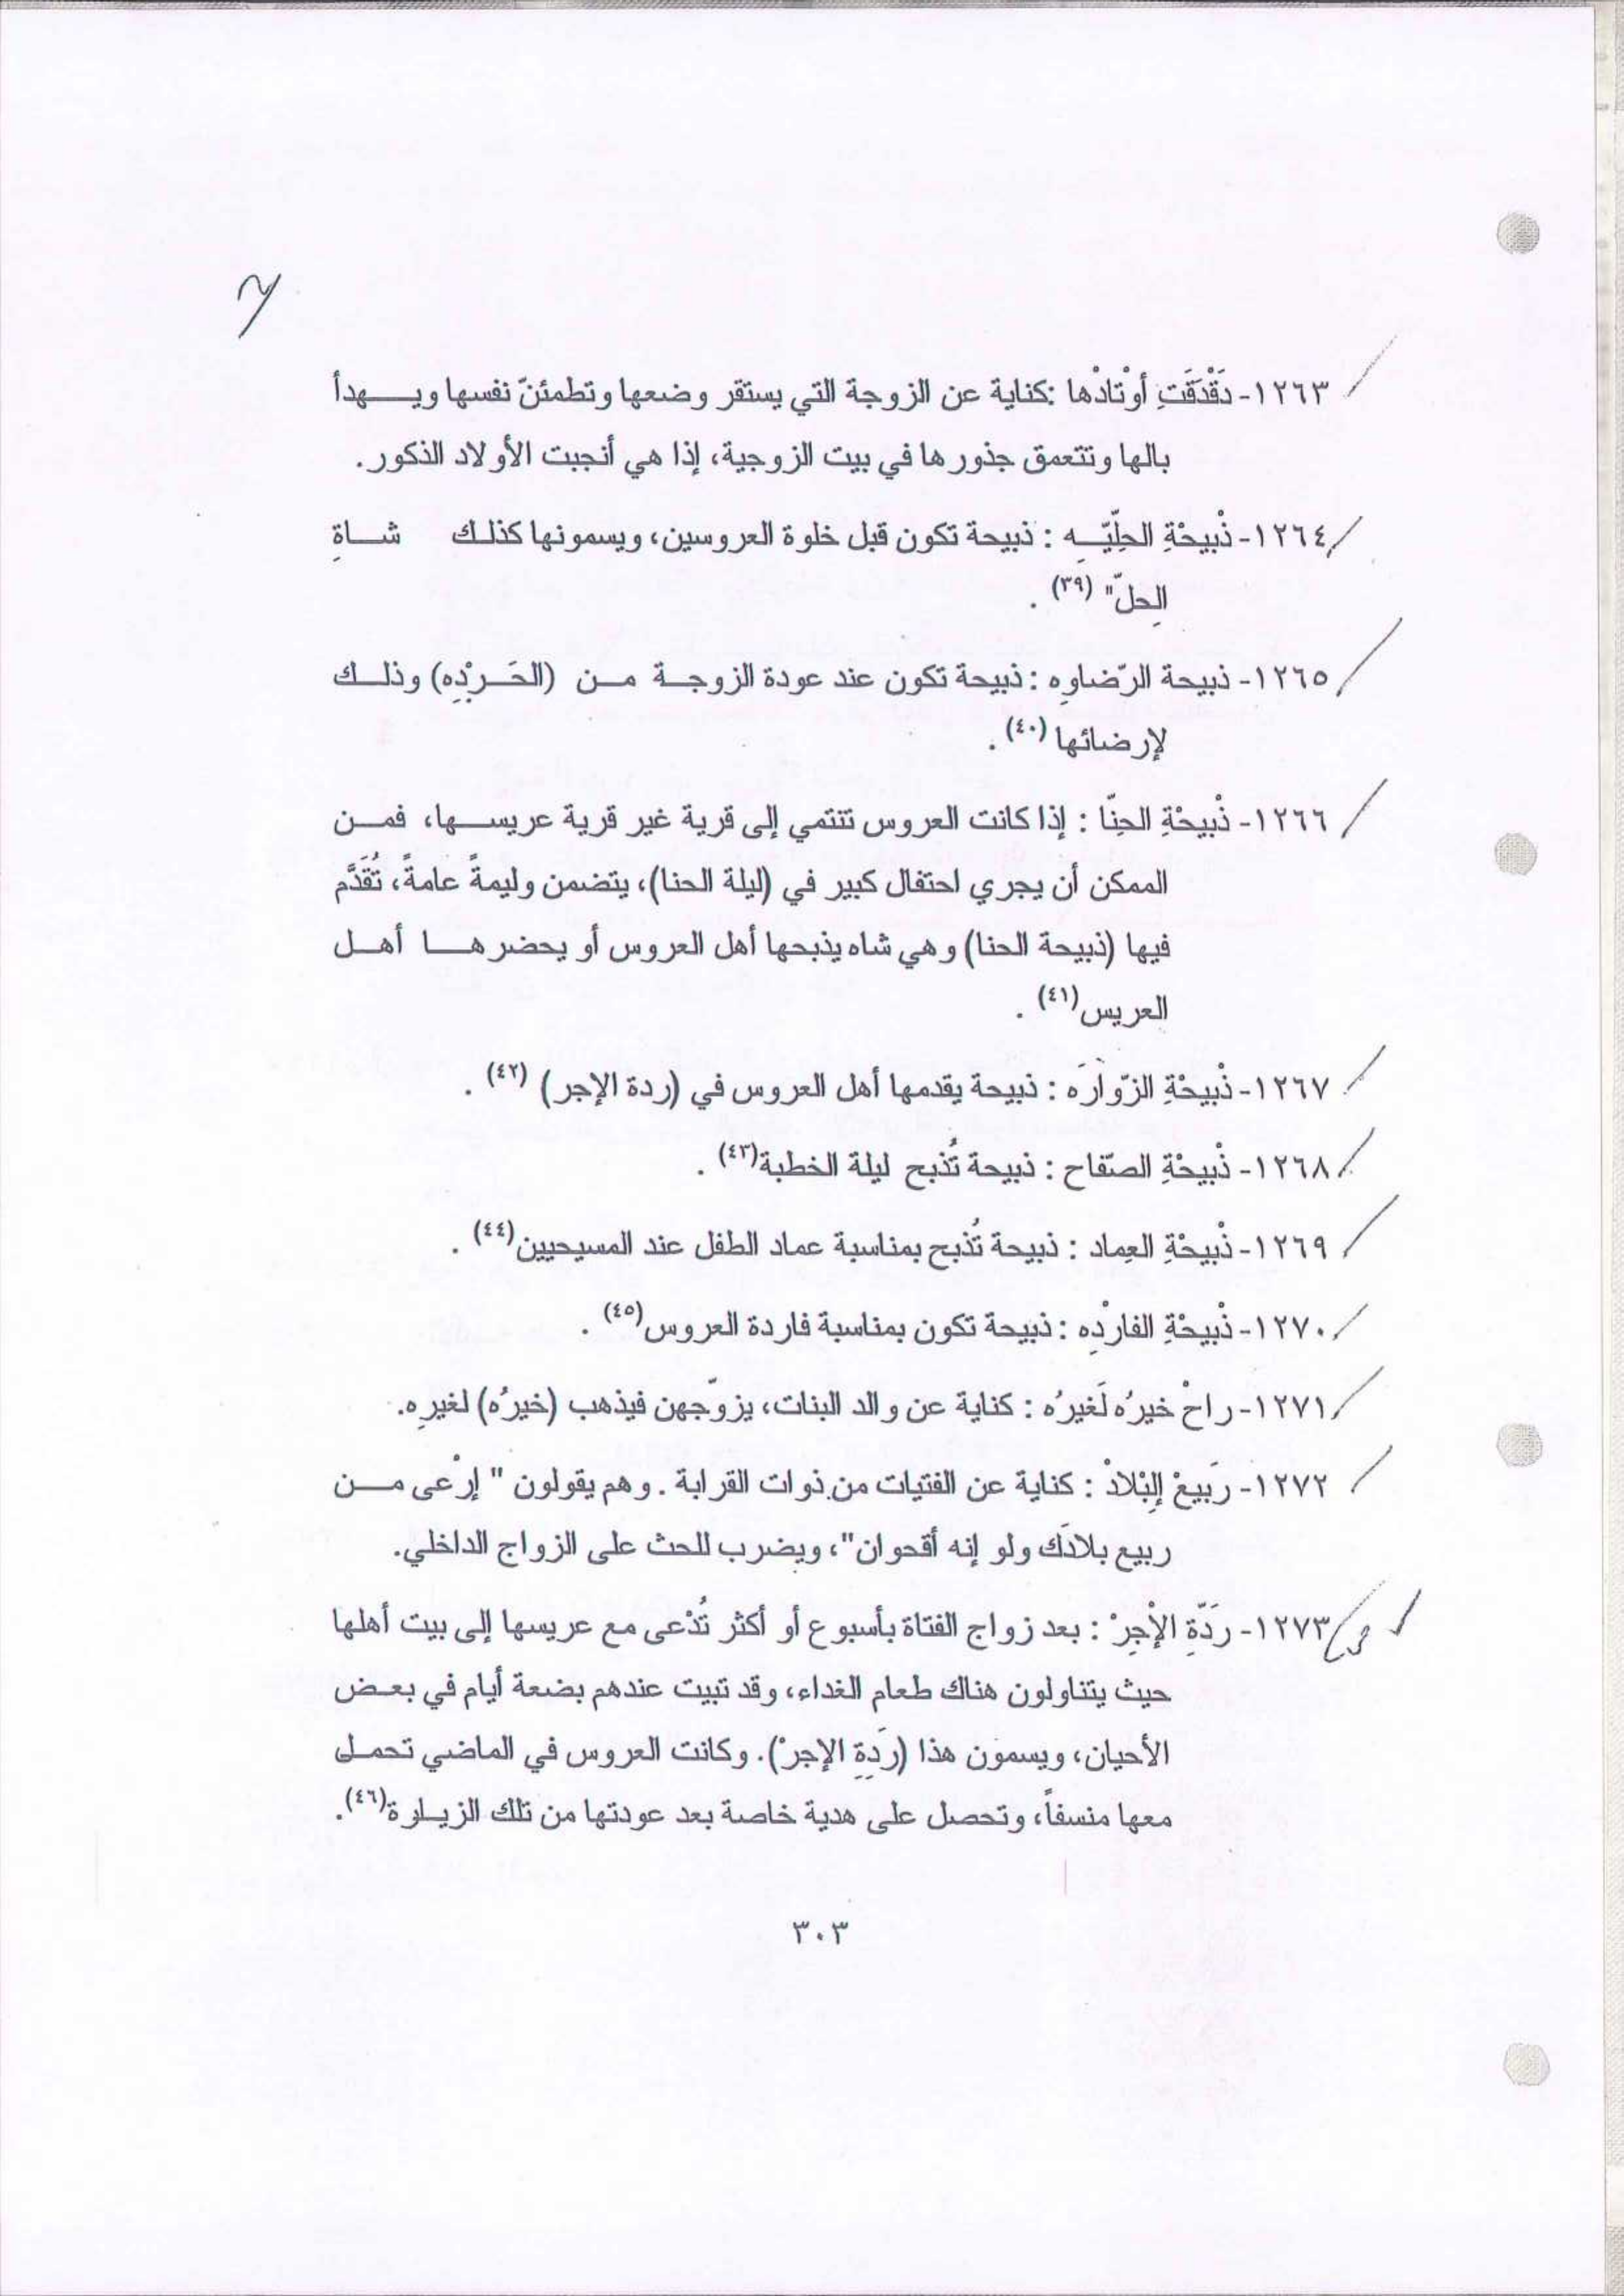 ١٢٦٣- دَقْدَقَتِ أوْتادْها :كناية عن الزوجة التي يستقر وضعها وتطمئنّ نفسها ويهدأ
بالها وتتعمق جذورها في بيت الزوجية، إذا هي أنجبت الأولاد الذكور.
١٢٦٤- ذْبيحْةِ الحلِّيّه : ذبيحة تكون قبل خلوة العروسين، ويسمونها كذلك شاةِ
الحِلّ" (٣٩) .
١٢٦٥- ذبيحة الرّضاوِه : ذبيحة تكون عند عودة الزوجة من (الحَرْدِه) وذلك
لإرضائها (٤٠) .
١٢٦٦- ذْبيحْةِ الحِنّا : إذا كانت العروس تنتمي إلى قرية غير قرية عريسها، فمن
الممكن أن يجري احتفال كبير في (ليلة الحنا)، يتضمن وليمةً عامةً، تُقَدَّم
فيها (ذبيحة الحنا) وهي شاه يذبحها أهل العروس أو يحضرها أهل
العريس(٤١) .
١٢٦٧- ذْبيحْةِ الزّوارَه : ذبيحة يقدمها أهل العروس في (ردة الإجر) (٤٢) .
١٢٦٨- ذْبيحْةِ الصّفاح : ذبيحة تُذبح ليلة الخطبة(٤٣) .
١٢٦٩- ذْبيحْةِ العِماد : ذبيحة تُذبح بمناسبة عماد الطفل عند المسيحيين(٤٤) .
١٢٧٠- ذْبيحْةِ الفارْدِه : ذبيحة تكون بمناسبة فاردة العروس(٤٥) .
١٢٧١- راحْ خيرُه لَغيرُه : كناية عن والد البنات، يزوّجهن فيذهب (خيرُه) لغيرِه.
١٢٧٢- رَبيعْ إلِبْلادْ : كناية عن الفتيات من ذوات القرابة . وهم يقولون " إرْعى من
ربيع بلادَك ولو إنه أقحوان"، ويضرب للحث على الزواج الداخلي.
١٢٧٣- رَدّةِ الإْجِرْ : بعد زواج الفتاة بأسبوع أو أكثر تُدْعى مع عريسها إلى بيت أهلها
حيث يتناولون هناك طعام الغداء، وقد تبيت عندهم بضعة أيام في بعض
الأحيان، ويسمون هذا (رَدِةِ الإجرْ). وكانت العروس في الماضي تحمل
معها منسفاً، وتحصل على هدية خاصة بعد عودتها من تلك الزيارة(٤٦).
٣٠٣